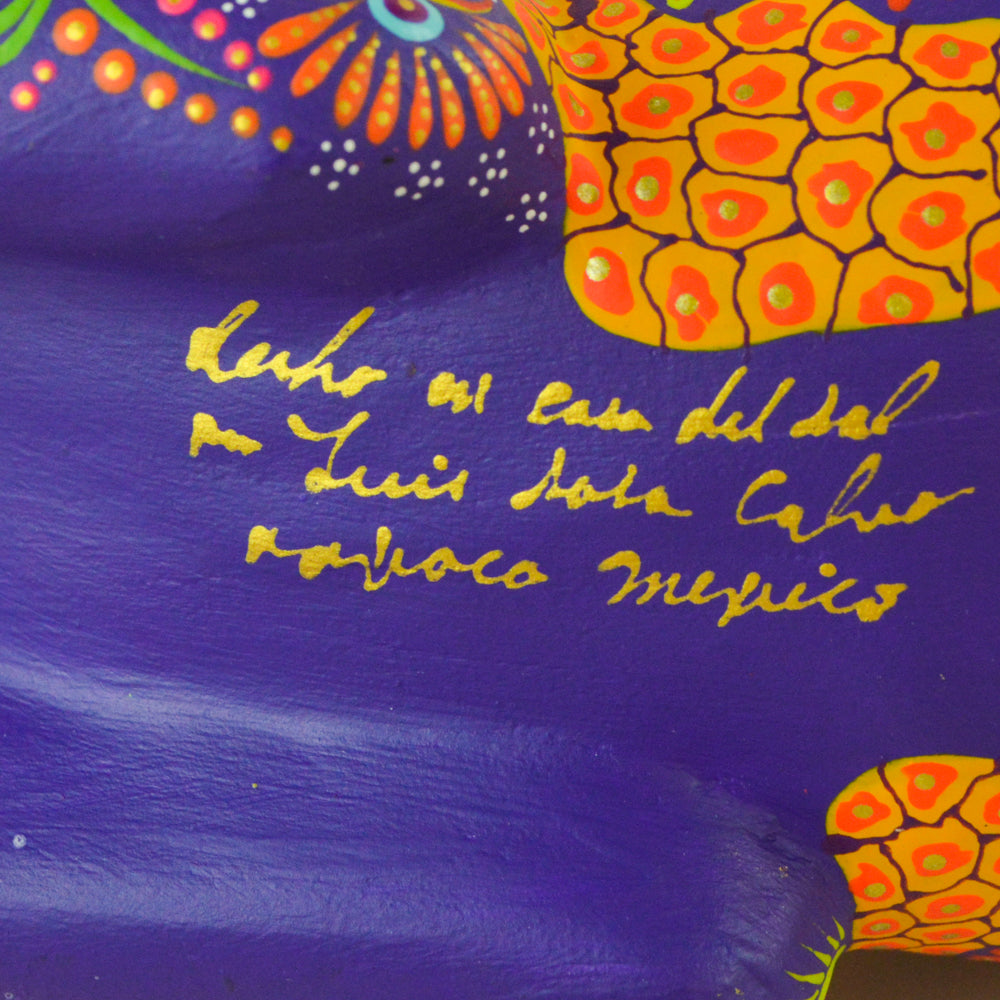 hecho en casa del sol
m Luis Sosa Calvo
oaxaca mexico